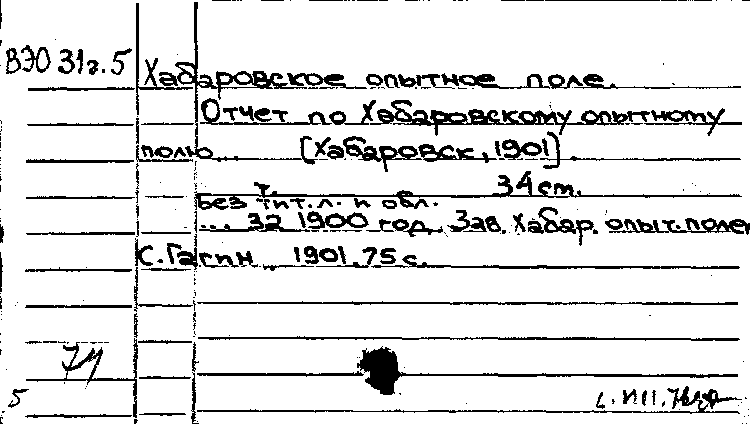 ВЭО 31г.5
Хабаровское опытное поле.
Отчет по Хабаровскому опытному
полю... [Хабаровск, 1901].
т. 34 cm.
Без тит. л. и обл.
... за 1900 год. Зав. Хабар. опыт. полем
С. Гагин 1901. 75 с.
5